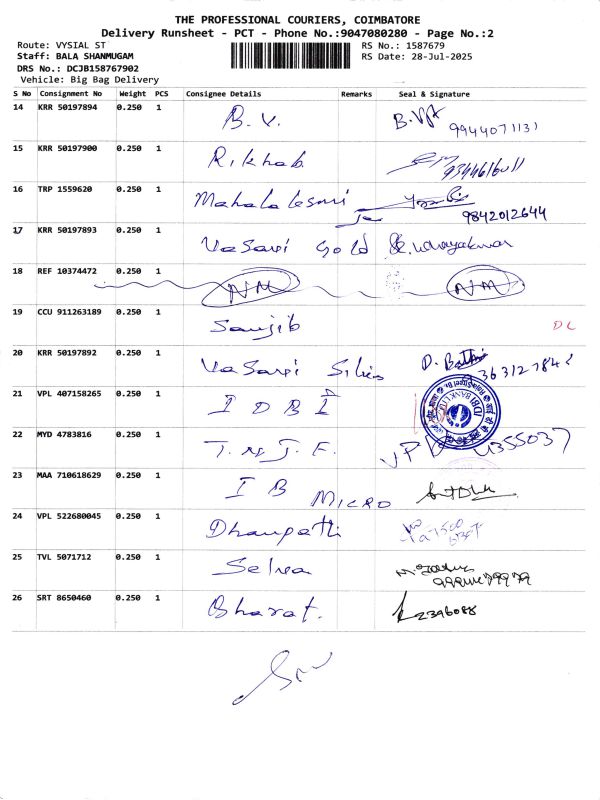 THE PROFESSIONAL COURIERS, COIMBATORE
Delivery Runsheet - PCT - Phone No.:9047080280 - Page No.:2
Route: VYSIAL ST
RS No.: 1587679
Staff: BALA SHANMUGAM
RS Date: 28-Jul-2025
DRS No.: DCJB158767902
Vehicle: Big Bag Delivery
S No Consignment No Weight PCS Consignee Details Remarks Seal & Signature
14 KRR 50197894 0.250 1 B.V. 9944071131
15 KRR 50197900 0.250 1 Rikhab
16 TRP 1559620 0.250 1 Mahalakshmi 9842012644
17 KRR 50197893 0.250 1 Vasavi Gold
18 REF 10374472 0.250 1 NM NM
19 CCU 911263189 0.250 1 Sanjib DL
20 KRR 50197892 0.250 1 Vasavi
21 VPL 407158265 0.250 1 IDBI
22 MYD 4783816 0.250 1 4355037
23 MAA 710618629 0.250 1 IB MICRO
24 VPL 522680045 0.250 1
25 TVL 5071712 0.250 1 Selva
26 SRT 8650460 0.250 1 Bharat. 2396088